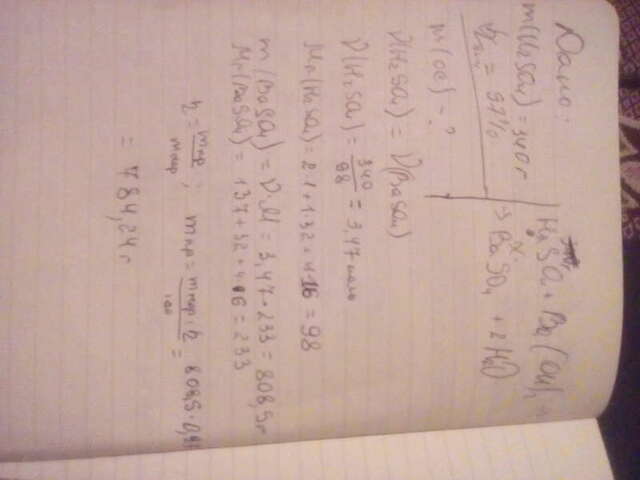 Дано:
m(H₂SO₄) = 340г | H₂SO₄ + Ba(OH)₂ →
= 97% | → BaSO₄ + 2H₂O
m(ос) - ?
ν(H₂SO₄) = ν(BaSO₄)
ν(H₂SO₄) = 340/98 = 3,47 моль
Mr(H₂SO₄) = 2·1+1·32+4·16 = 98
m(BaSO₄) = ν·M = 3,47·233 = 808,5г
Mr(BaSO₄) = 137+32+4·16 = 233
η = mпр/mтеор ; mпр = mтеор·η/100 = 808,5·0,97
= 784,24г